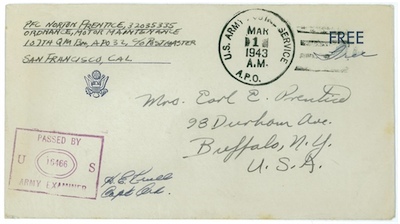 PFC NORTEN PRENTICE, 32035335
ORDNANCE, MOTOR MAINTENANCE
107TH QM BN, APO 32, C/O POSTMASTER
SAN FRANCISCO, CAL
U.S. ARMY POSTAL SERVICE
MAR
1
1943
A.M.
A.P.O.
FREE
Free
Mrs. Earl E. Prentice
98 Durham Ave.
Buffalo, N.Y.
U.S.A.
PASSED BY
U 15466 S
ARMY EXAMINER